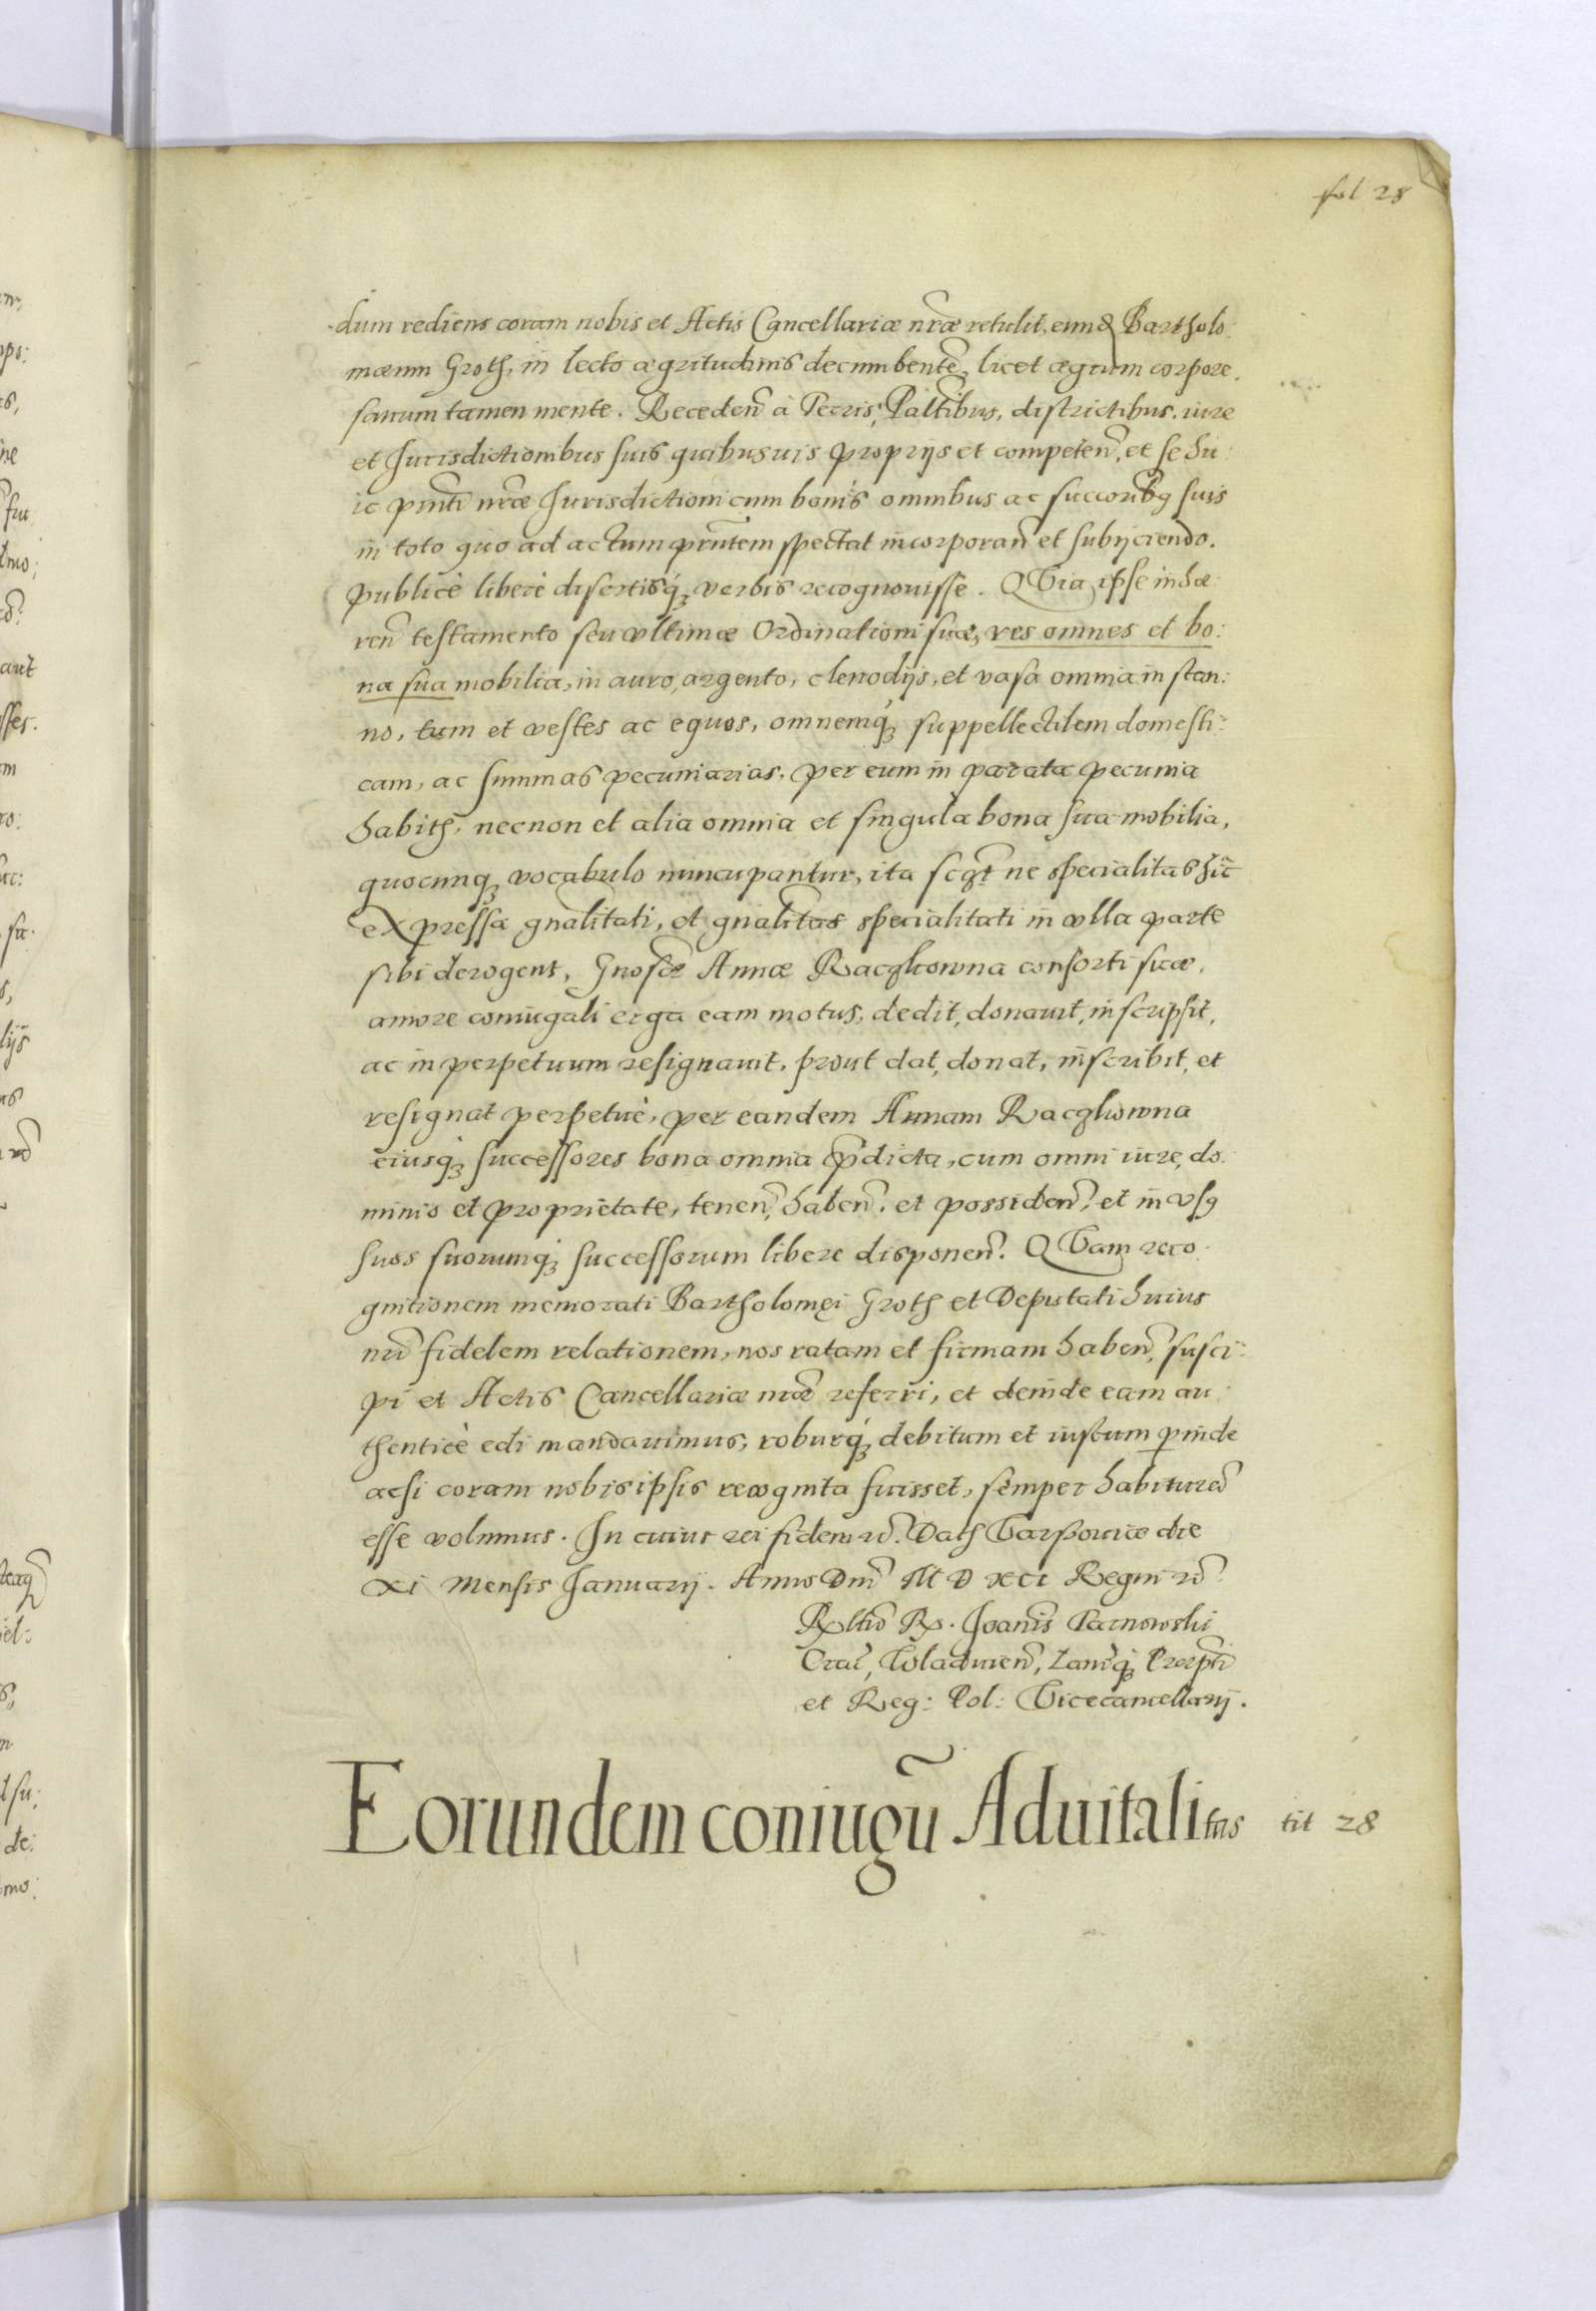 fol 28
dum rediens coram nobis et Actis Cancellariæ nr̃æ retulit, eund Bartholo:
mæum Groth, in lecto ægritudinis decumbentẽ, licet ægrum corpore,
sanum tamen mente. Recedeñ à Terris, Pal̃tibus, districtibus, iure
et Jurisdictionibus suis quibusuis proprijs et competeñ, et se hu:
ic pñti nr̃æ Jurisdictioni cum bonis omnibus ac succorib9 suis
in toto quo ad actum prñtem spectat incorporañ et subijciendo.
publicè liberè disertisq́ʒ verbis recognouisse. QVia ipse inhæ:
reñ testamento seu vltimæ Ordinationi suæ, res omnes et bo:
na sua mobilia, in auro, argento, clenodijs, et vasa omnia in stan:
no, tum et vestes ac equos, omnemq́ʒ suppellectilem domesti:
cam, ac summas pecuniarias, per eum in parata pecunia
habitħ, necnon et alia omnia et singula bona sua mobilia,
quocunqʒ vocabulo nuncupantur, ita ne specialitas hic
expressa gñalitati, et gñalitas specialitati in vlla parte
sibi derogent, Gnosæ Annæ Raczkowna consorti suæ,
amore coniugali erga eam motus, dedit, donauit, inscripsit,
ac in perpetuum resignauit, prout dat, donat, inscribit, et
resignat perpetuè, per eandem Annam Raczkowna
eiusq́ʒ successores bona omnia p̃dicta, cum omni iure, do:
minio et proprietate, teneñ, habeñ, et possideñ, et in vs9
suos suorumq́ʒ successorum libere disponeñ. QVam reco:
gnitionem memorati Bartholomęi Groth et Deputati huius
nr̃i fidelem relationem, nos ratam et firmam habeñ, susci:
pi et Actis Cancellariæ nr̃æ referri, et deinde eam au:
thenticè edi mandauimus, roburq́ʒ debitum et iustum perinde
acsi coram nobis ipsis recognita fuisset, semper habiturã
esse volumus. In cuius rei fidem Datħ Varssouiæ die
XI Mensis Januarij. Anno Dñi M D XCI Regni
Rltio Rx. Joañis Tarnowski
Crac̃, Wladisleñ, Præpti
et Reg: Pol: Vicecancellarij.
Eorundem coniugũ Aduitalitas tit 28